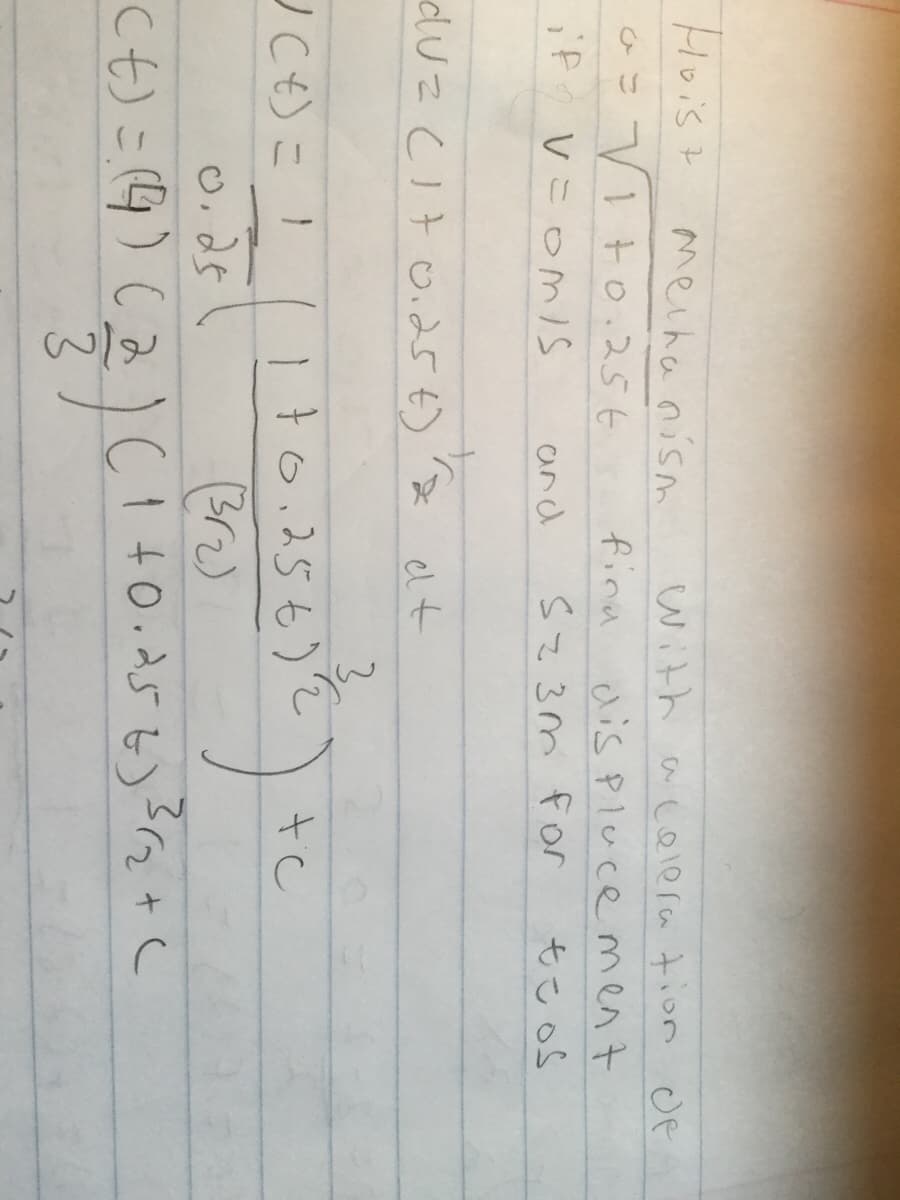 Hoist mechanism with acceleration of
a = √1+0.25t find displacement
if v=0m/s and s=3m for t=0s
dv=(1+0.25t)^1/2 dt
(t) = 1/0.25 ((1+0.25t)^3/2/(3/2)) + c
(t) = (4)(2/3)(1+0.25t)^3/2 + c